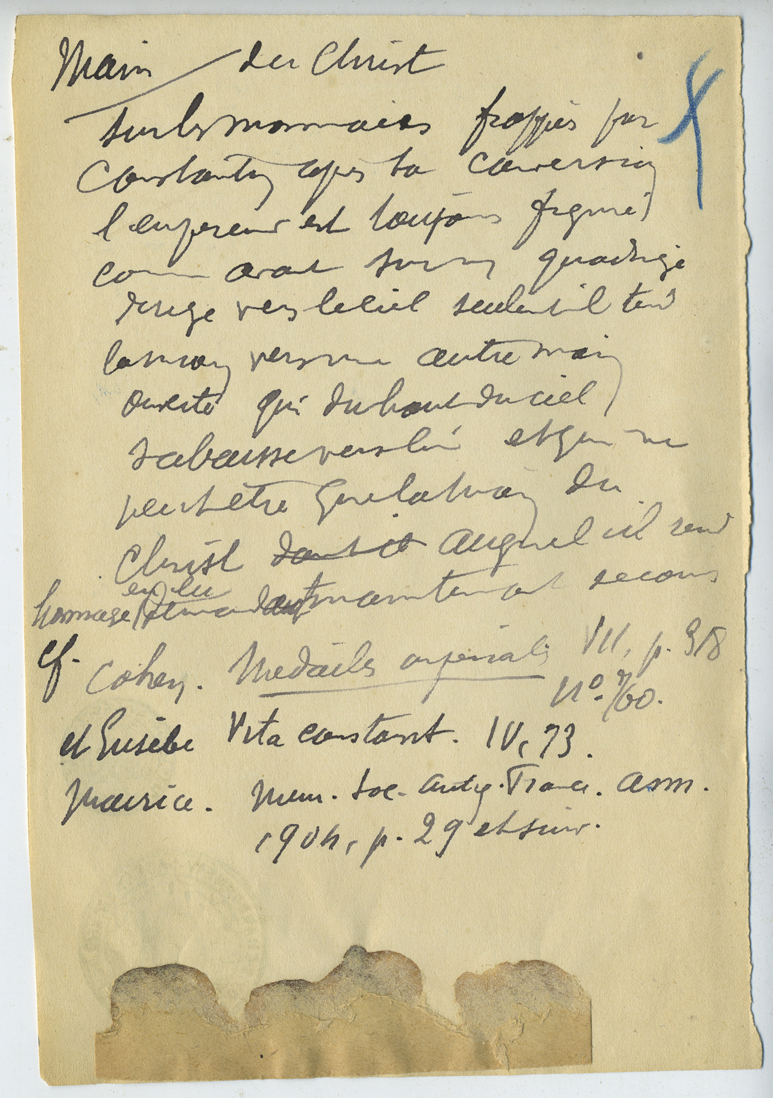 Main du Christ
sur les monnaies frappées par
Constantin après sa conversion
l'empereur est toujours figuré
comm avant sur un quadrige
dirigé vers le ciel seulement il tend
la main vers une autre main
ouverte qui du haut du ciel
s'abaisse vers lui et qui ne
peut être que la main du
Christ dont it auquel il rend
hommage et maintenant secours
en lui
cf. Cohen. Medailles impériales VII, p. 318
N° 760.
et Eusèbe Vita constant. IV, 73.
Maurice. Mem. Soc. Antiq. France. ann.
1904, p. 29 et suiv.